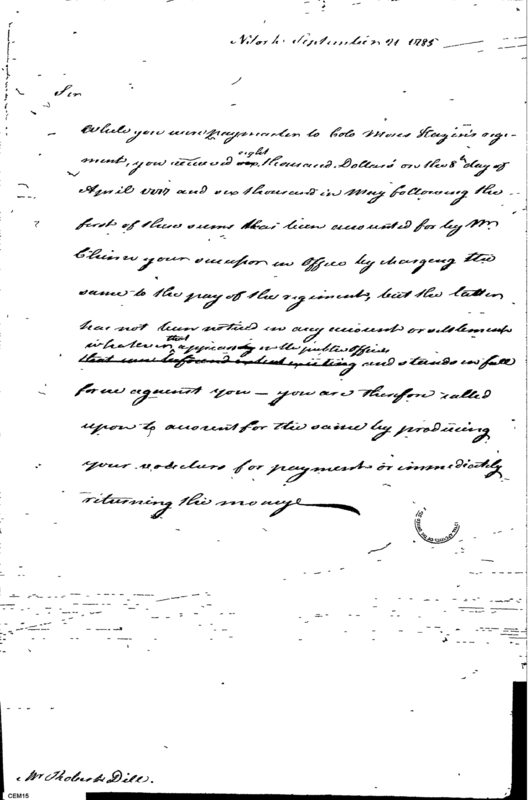 N York September 21 1785
Sir
While you were paymaster to Colo Moses Hazen's regi-
ment, you received eight thousand Dollars on the 8th day of
April 1777 and six thousand in May following the
first of these sums has been accounted for by Mr
your successor in Office by charging the
same to the pay of the regiment, but the latter
has not been noticed in any account or settlement
whatever that appears in the public Offices
and stands in full
force against you — you are therefore called
upon to account for the same by producing
your vouchers for payment or immediately
returning the money
Mr Robert Dill.
CEM15